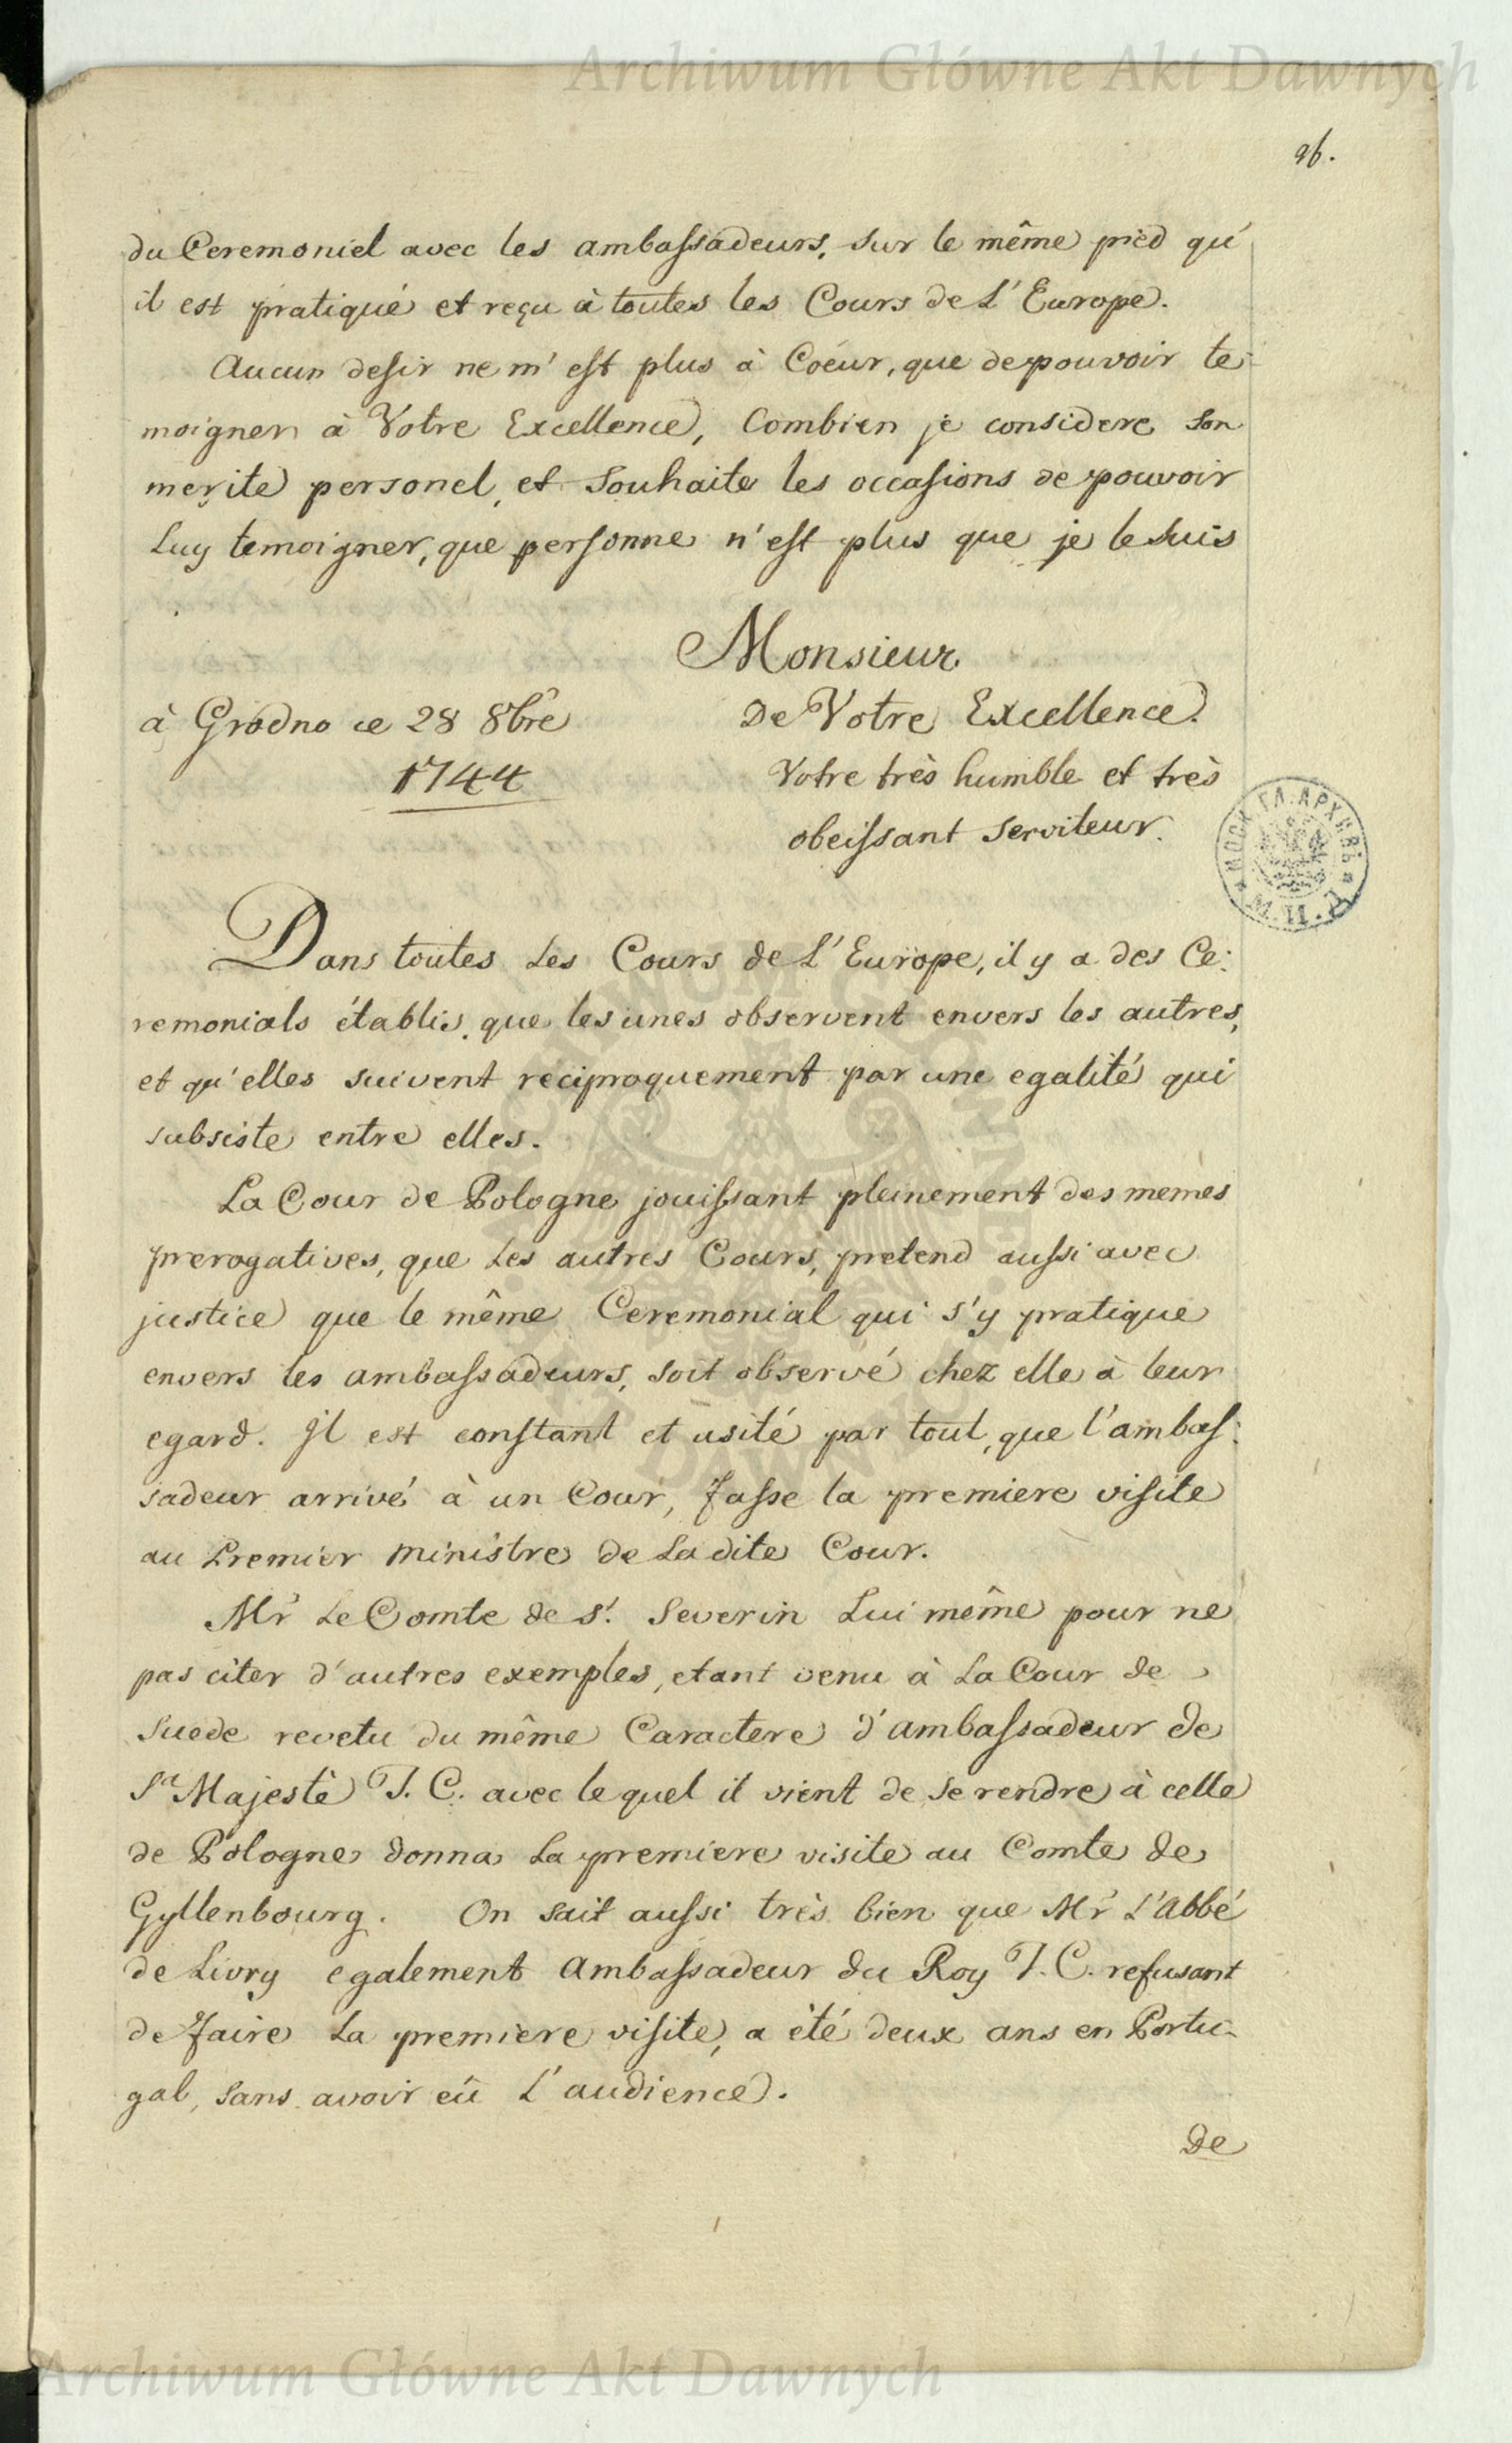 Archiwum Główne Akt Dawnych
96.
du Ceremoniel avec les ambassadeurs, sur le même pied qu'
il est pratiqué et reçu à toutes les Cours de L'Europe.
Aucun desir ne m'est plus à Coeur, que de pouvoir te-
moigner à Votre Excellence, Combien je considere son
merite personel, et souhaite les occasions de pouvoir
Luy temoigner, que personne n'est plus que je le suis
Monsieur
De Votre Excellence.
à Grodno ce 28 8bre
1744
Votre très humble et très
obeissant serviteur.
МОСК. ГЛ. АРХИВЪ М. И. Д.
Dans toutes Les Cours de L'Europe, il y a des Ce-
remonials établis, que les unes observent envers les autres,
et qu'elles suivent reciproquement par une egalité qui
subsiste entre elles.
La Cour de Pologne jouissant pleinement des memes
prerogatives, que Les autres Cours, pretend aussi avec
justice que le même Ceremonial qui s'y pratique
envers les ambassadeurs, soit observé chez elle à leur
egard. Il est constant et usité par tout, que l'ambas-
sadeur arrivé à un Cour, fasse la premiere visite
au Premier ministre de La dite Cour.
Mr Le Comte de St. Severin Lui même pour ne
pas citer d'autres exemples, etant venu à La Cour de
Suede revetu du même Caractere d'ambassadeur de
Sa Majestè T. C. avec le quel il vient de se rendre à celle
de Pologne donna La premiere visite au Comte de
Gyllenbourg. On sait aussi très bien que Mr L'Abbé
de Livry egalement Ambassadeur du Roy T. C. refusant
de faire La premiere visite, a été deux ans en Portu-
gal, sans avoir eû L'audience.
de
Archiwum Główne Akt Dawnych